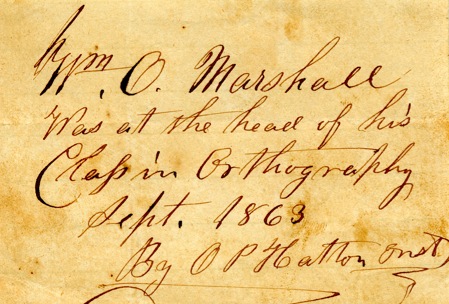 Wm. O. Marshall
Was at the head of his
Claſs in Orthography
Sept. 1863
By O P Hatton Inst.